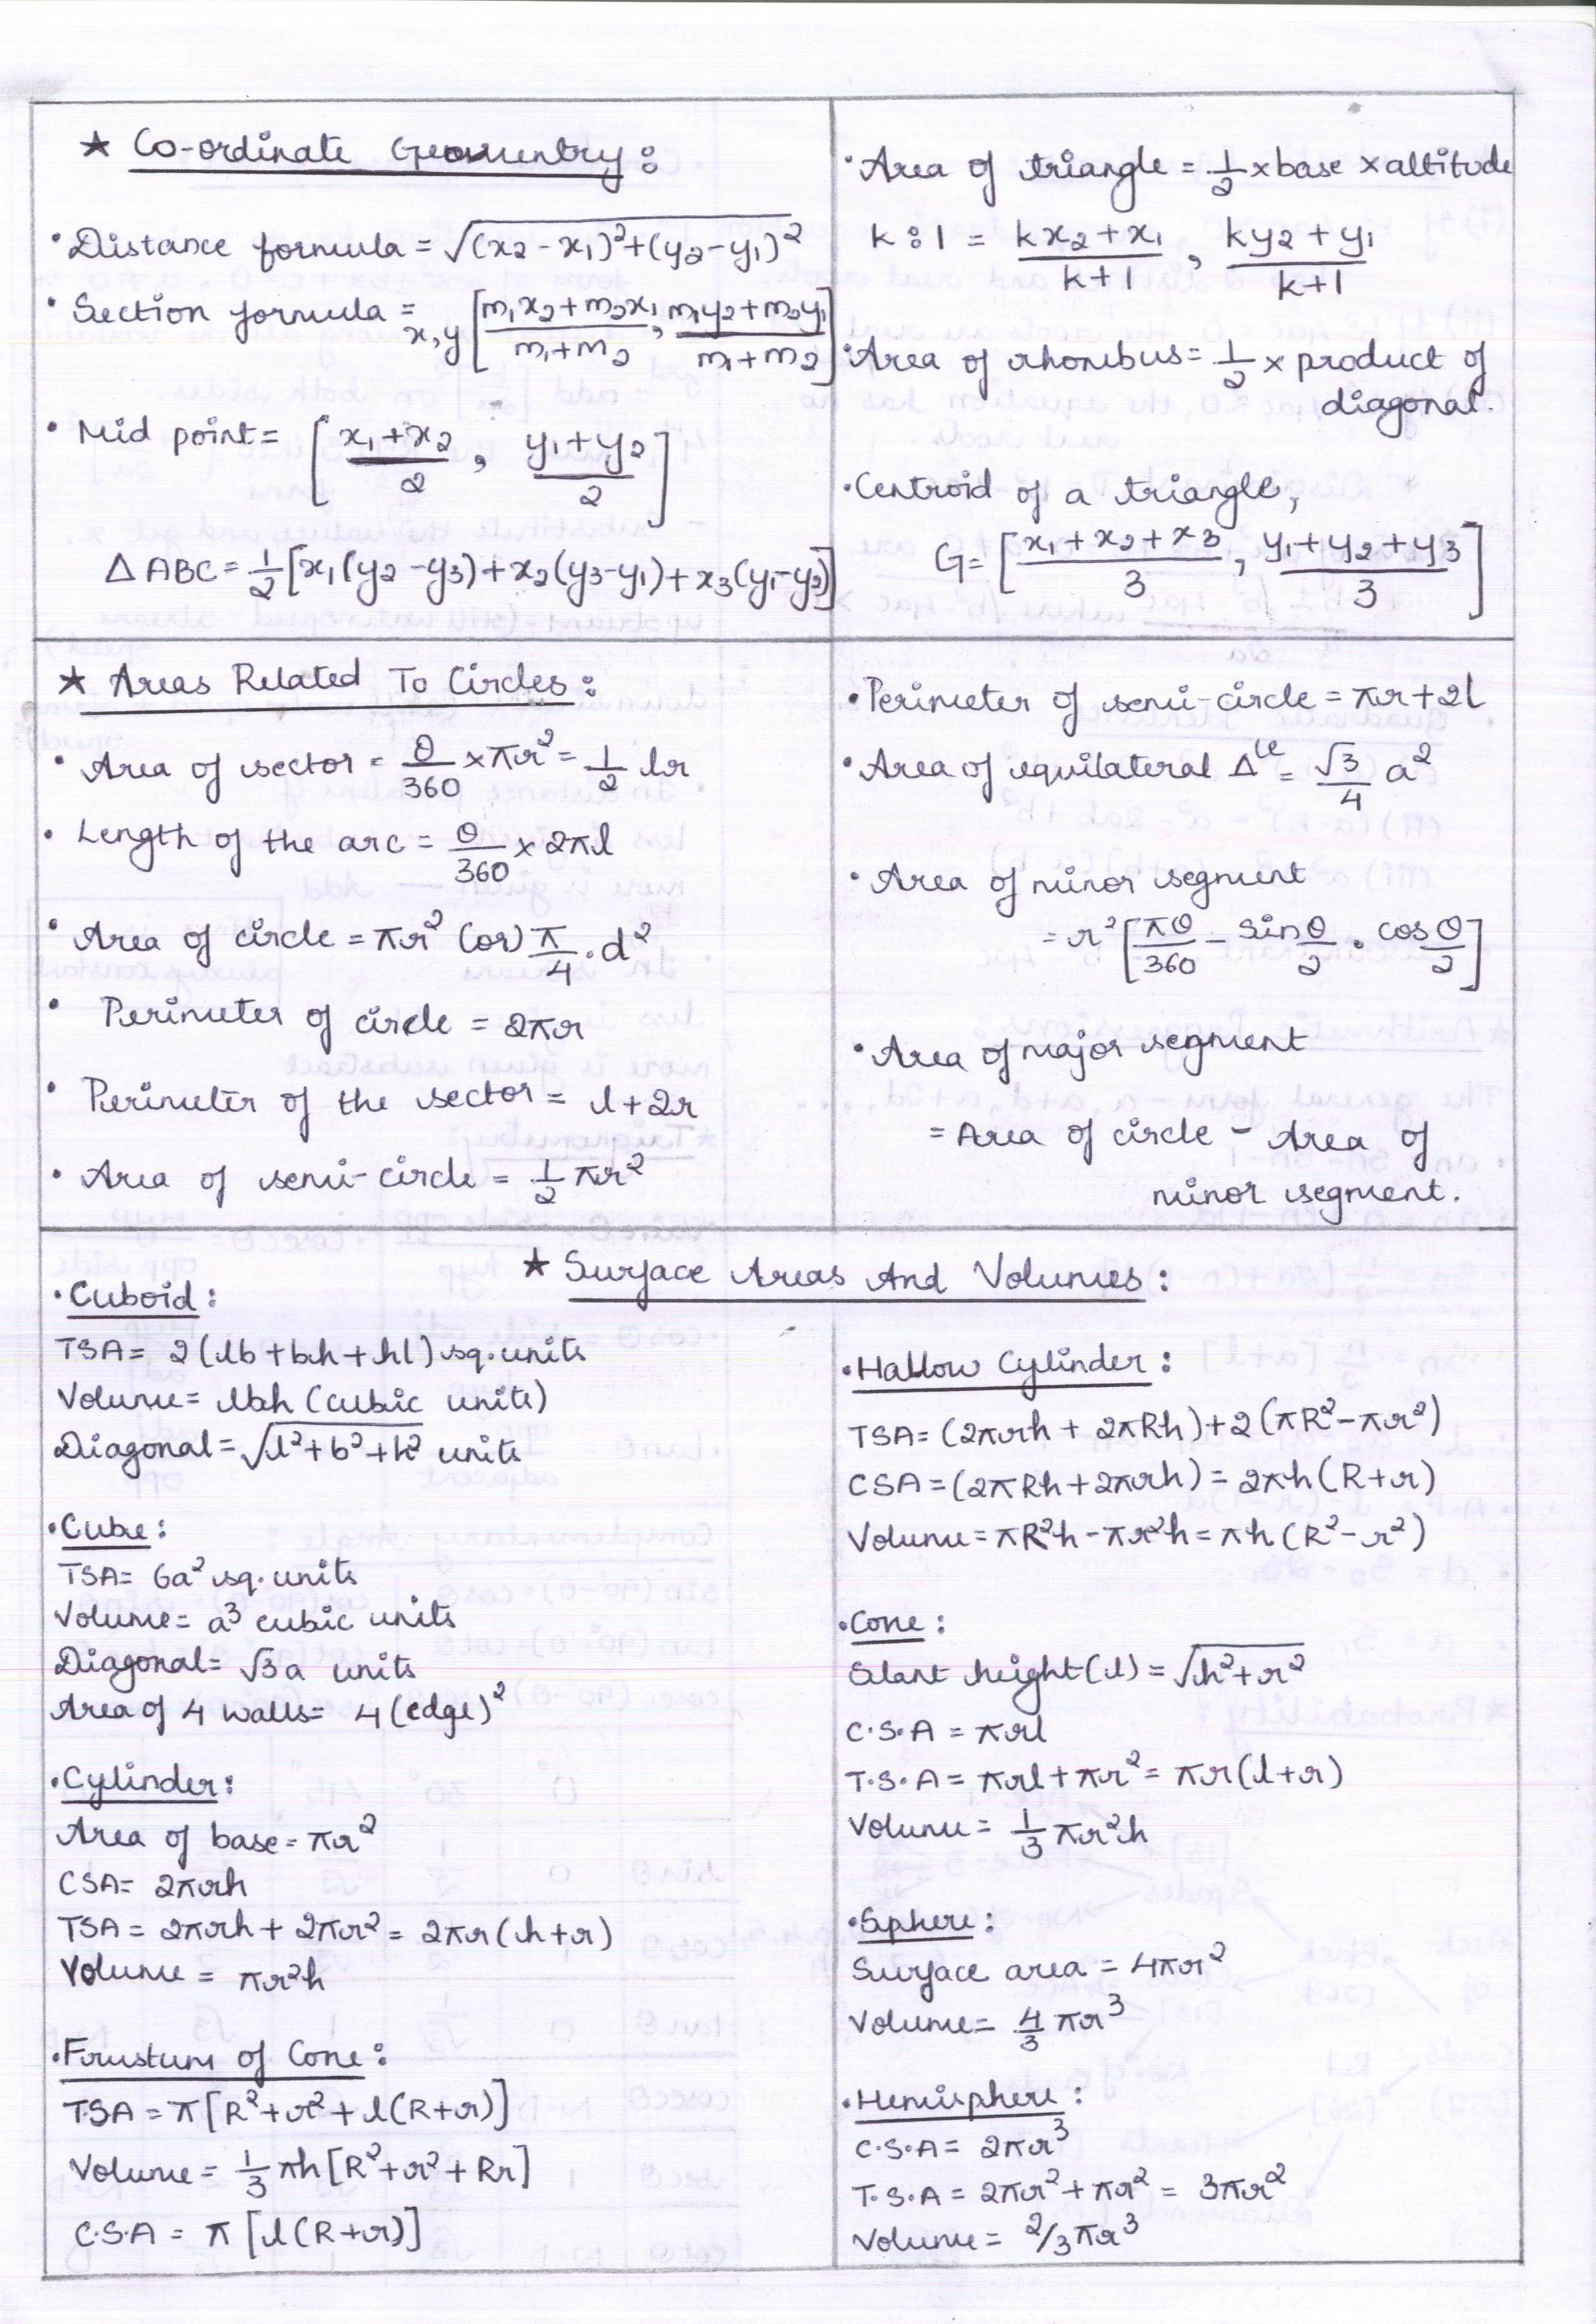 ★ Co-ordinate Geomentry:
• Distance formula = √(x₂ - x₁)² + (y₂ - y₁)²
• Section formula = x,y [m₁x₂ + m₂x₁ / m₁ + m₂, m₁y₂ + m₂y₁ / m₁ + m₂]
• Mid point = [x₁ + x₂ / 2, y₁ + y₂ / 2]
Δ ABC = 1/2 [x₁(y₂ - y₃) + x₂(y₃ - y₁) + x₃(y₁ - y₂)]
• Area of triangle = 1/2 × base × altitude
k : 1 = kx₂ + x₁ / k + 1, ky₂ + y₁ / k + 1
• Area of rhombus = 1/2 × product of
diagonal.
• Centroid of a triangle,
G = [x₁ + x₂ + x₃ / 3, y₁ + y₂ + y₃ / 3]
★ Areas Related To Circles:
• Area of sector = θ/360 × πr² = 1/2 lr
• Length of the arc = θ/360 × 2πl
• Area of circle = πr² (or) π/4 . d²
• Perimeter of circle = 2πr
• Perimeter of the sector = l + 2r
• Area of semi-circle = 1/2 πr²
• Perimeter of semi-circle = πr + 2l
• Area of equilateral Δle = √3/4 a²
• Area of minor segment
= r² [πθ/360 - sin θ/2 . cos θ/2]
• Area of major segment
= Area of circle - Area of
minor segment.
★ Surface Areas And Volumes:
• Cuboid:
TSA = 2(lb + bh + hl) sq. units
Volume = lbh (cubic units)
Diagonal = √l² + b² + h² units
• Cube:
TSA = 6a² sq. units
Volume = a³ cubic units
Diagonal = √3 a units
Area of 4 walls = 4 (edge)²
• Cylinder:
Area of base = πr²
CSA = 2πrh
TSA = 2πrh + 2πr² = 2πr(h + r)
Volume = πr²h
• Frustum of Cone:
T.S.A = π[R² + r² + l(R + r)]
Volume = 1/3 πh[R² + r² + Rr]
C.S.A = π [l(R + r)]
• Hallow Cylinder:
TSA = (2πrh + 2πRh) + 2(πR² - πr²)
CSA = (2πRh + 2πrh) = 2πh(R + r)
Volume = πR²h - πr²h = πh(R² - r²)
• Cone:
Slant height (l) = √h² + r²
C.S.A = πrl
T.S.A = πrl + πr² = πr(l + r)
Volume = 1/3 πr²h
• Sphere:
Surface area = 4πr²
Volume = 4/3 πr³
• Hemisphere:
C.S.A = 2πr³
T.S.A = 2πr² + πr² = 3πr²
Volume = 2/3 πr³